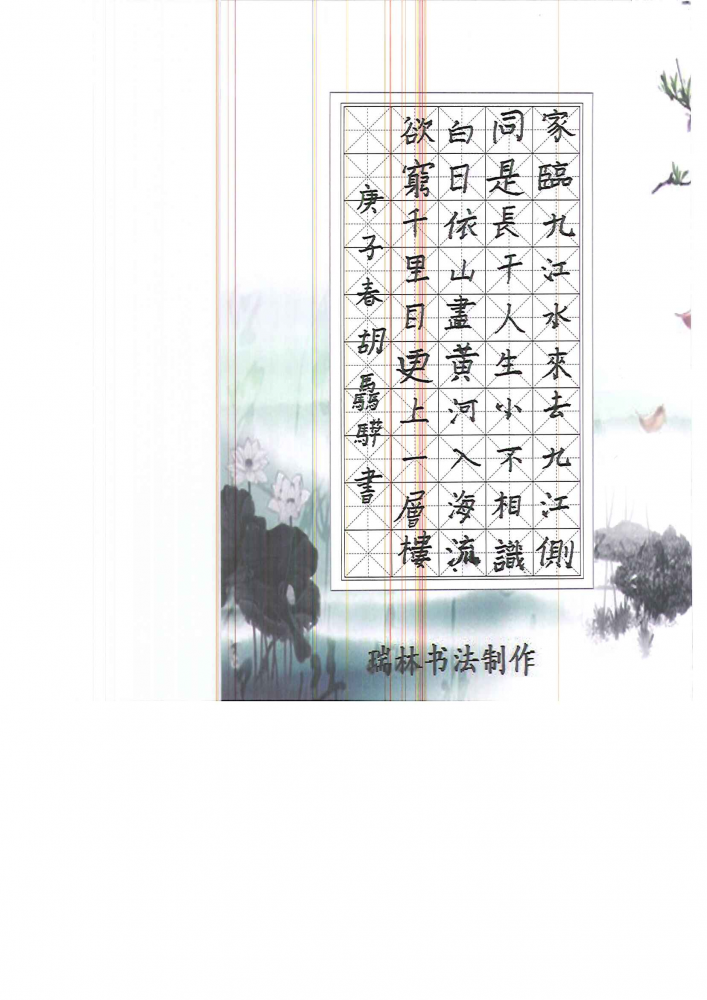 家臨九江水來去九江側
同是長干人生小不相識
白日依山盡黃河入海流
欲窮千里目更上一層樓
庚子春胡驫驊書
瑞林书法制作